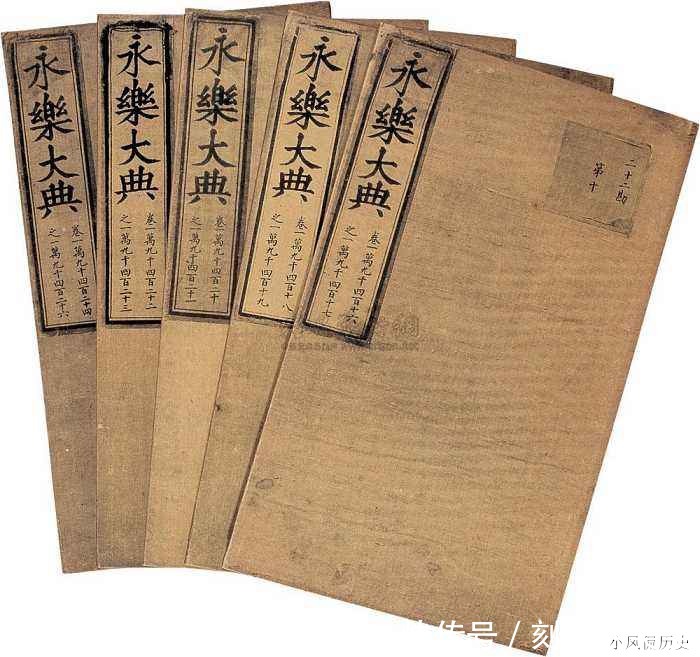 二十二勘
第十
永樂大典
卷一萬九千四百十六
之一萬九千四百十七
永樂大典
卷一萬九千四百十八
之一萬九千四百十九
永樂大典
卷一萬九千四百二十
之一萬九千四百二十一
永樂大典
卷一萬九千四百二十二
之一萬九千四百二十三
永樂大典
卷一萬九千四百二十四
之一萬九千四百二十六
号 / 刻
历史